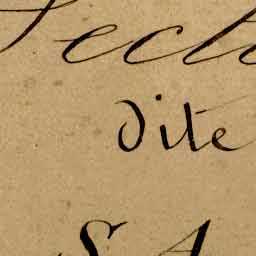 Secti
dite
S. A